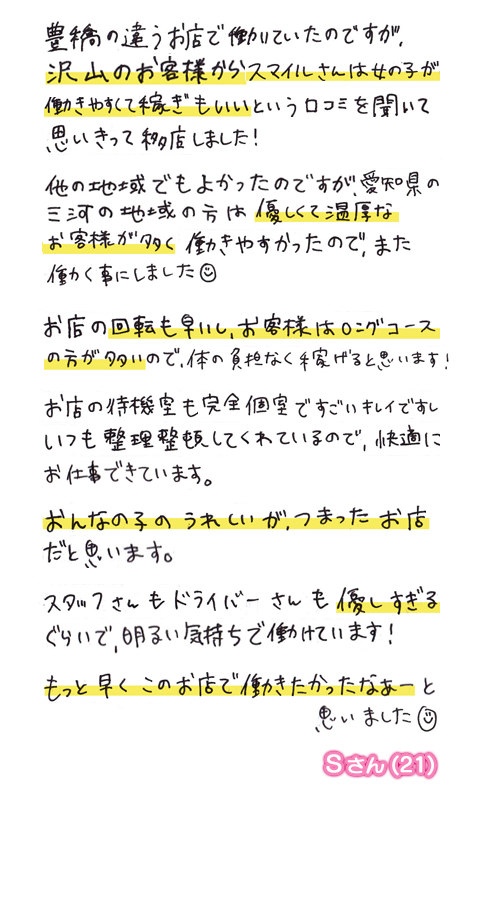 豊橋の違うお店で働いていたのですが、
沢山のお客様からスマイルさんは女の子が
働きやすくて稼ぎもいいという口コミを聞いて
思いきって移店しました!
他の地域でもよかったのですが、愛知県の
三河の地域の方は優しくて温厚な
お客様が多く働きやすかったので、また
働く事にしました☺
お店の回転も早いし、お客様はロングコース
の方が多いので、体の負担なく稼げると思います!
お店の待機室も完全個室ですごいキレイですし
いつも整理整頓してくれているので、快適に
お仕事できています。
おんなの子のうれしいが、つまったお店
だと思います。
スタッフさんもドライバーさんも優しすぎる
ぐらいで、明るい気持ちで働けています!
もっと早くこのお店で働きたかったなあーと
思いました☺
Sさん(21)